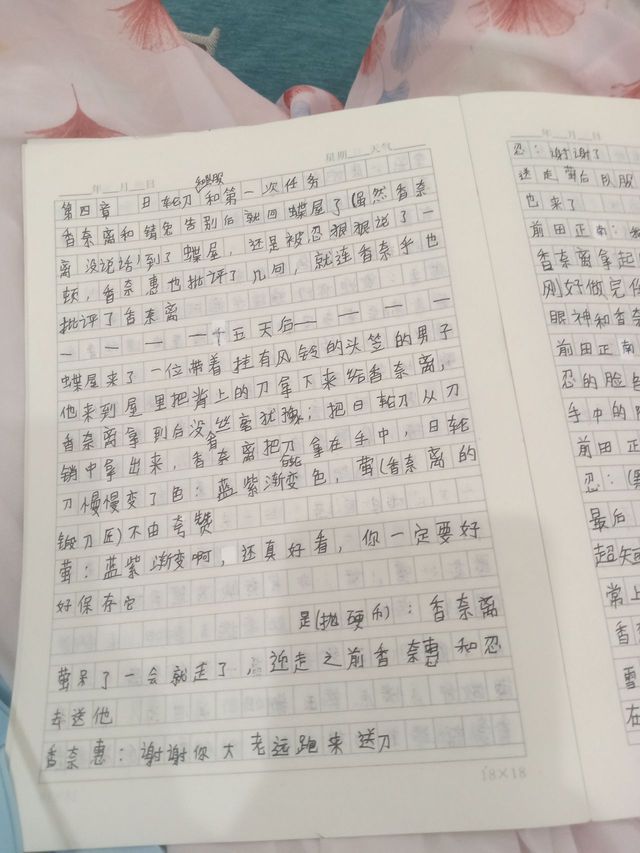 年 月 日
星期 天气
和队服
第四章 日轮刀和第一次任务
香奈离和锖兔告别后就回蝶屋了(虽然香奈
离没说话)到了蝶屋,还是被忍狠狠说了一
顿,香奈惠也批评了几句,就连香奈乎也
批评了香奈离
一 一 一 一 十五天后一 一 一 一
蝶屋来了一位带着挂有风铃的头笠的男子
他来到屋里把背上的刀拿下来给香奈离,
香奈离拿到后没有丝毫犹豫;把日轮刀从刀
销中拿出来,香奈离把刀拿在手中,日轮
刀慢慢变了色:蓝紫渐变色,萤(香奈离的
锻刀匠)不由夸赞
萤:蓝紫渐变啊,还真好看,你一定要好
好保存它
是(抛硬币):香奈离
萤呆了一会就走了,迎走之前香奈惠和忍
去送他
香奈惠:谢谢你大老远跑来送刀
18×18
年 月 日
忍:谢谢了
送走萤后队服
也来了
前田正南:
香奈离拿起
刚好做完任
眼神和香奈
前田正南
忍的脸色
手中的
前田正
忍:
最后
超短
常上
香
雪
在